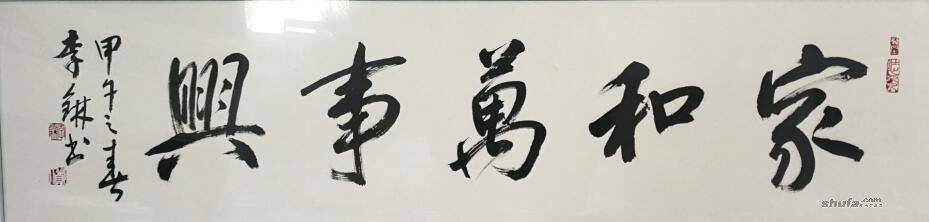 家和萬事興
甲午之春
李琳书
shufa.com